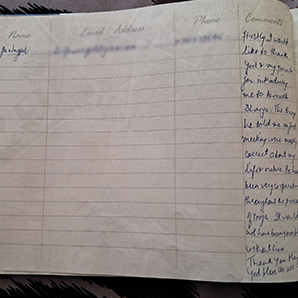 Name Email / Address Phone Comments
Firstly I would
like to thank
God & my parents
for introducing
me to
The thing
he told me in first
meeting were mostly
correct about my
life & nature. He has
been very cooperative
throughout the process
of Pooja. It would
not have been possible
without him.
Thank you
God bless